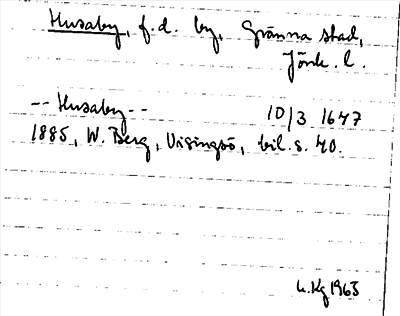 Husaby, f.d. by, Gränna stad,
Jönk. l.
-- Husaby --          10/3 1647
1885, W. Berg, Visingsö, bil. s. 40.
1963